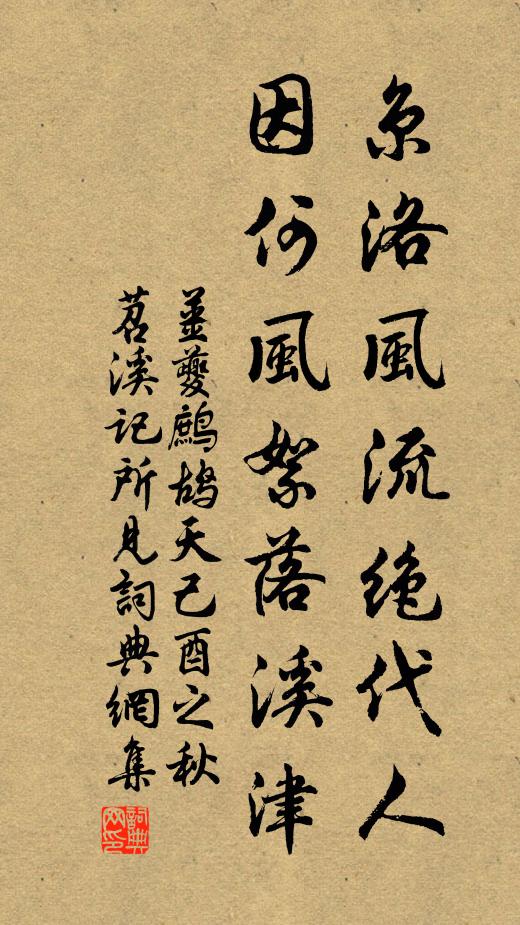 京洛風流絶代人
因何風絮落溪津
姜夔鷓鴣天己酉之秋
苕溪記所見詞典網集
詞典网印